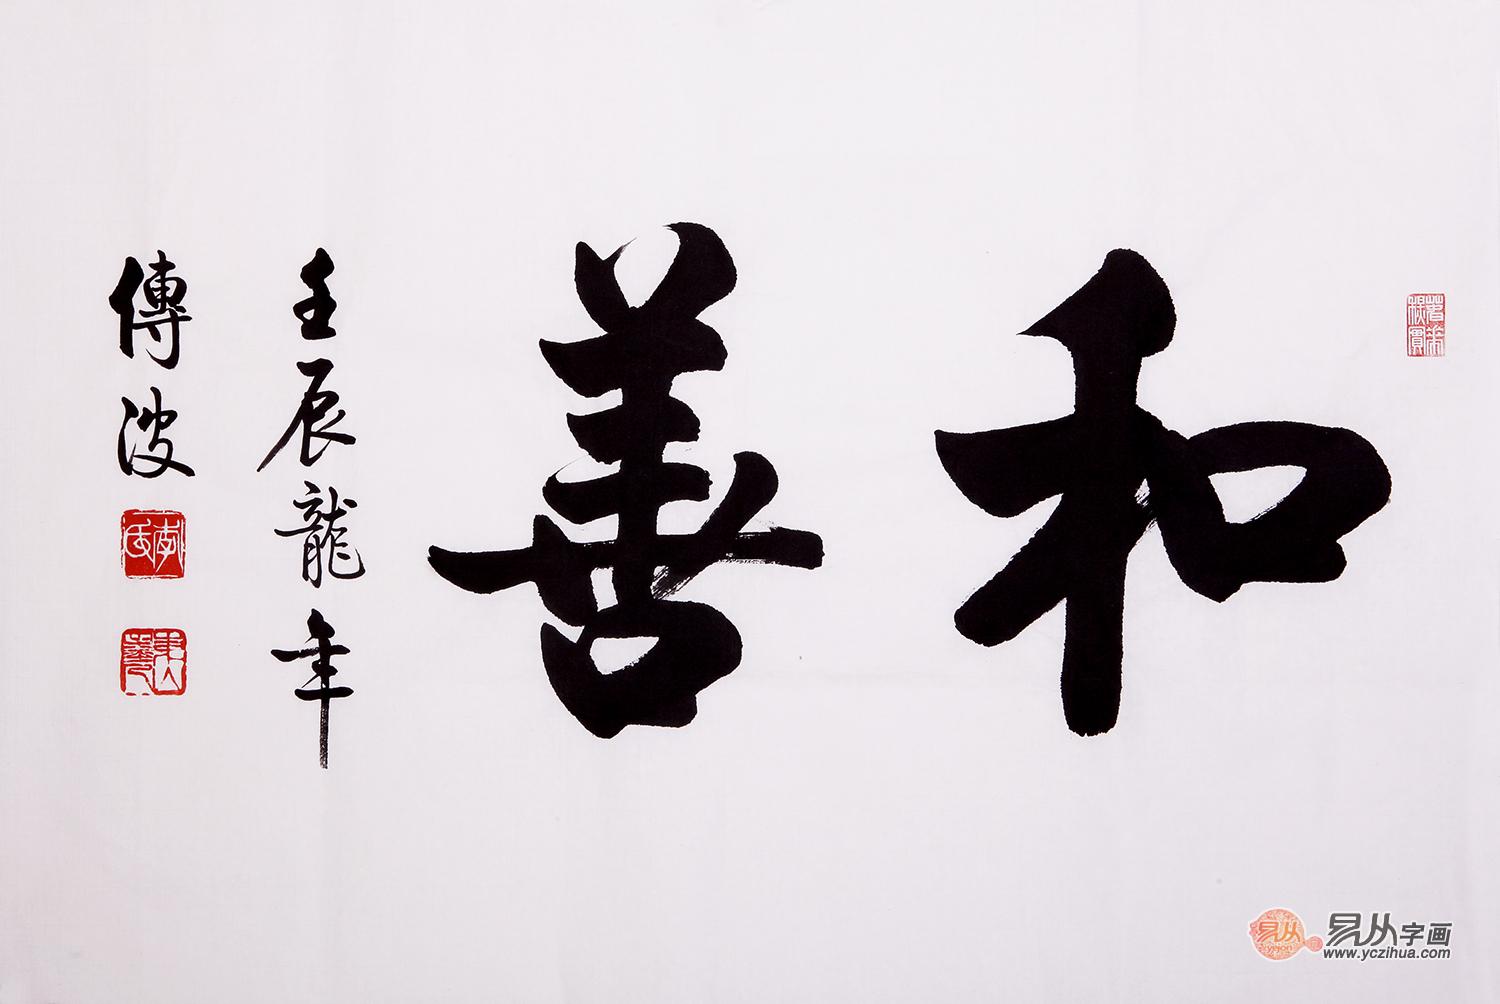 和善
壬辰龍年
傳波
李氏
易从字画
www.yczihua.com
易从
yicon